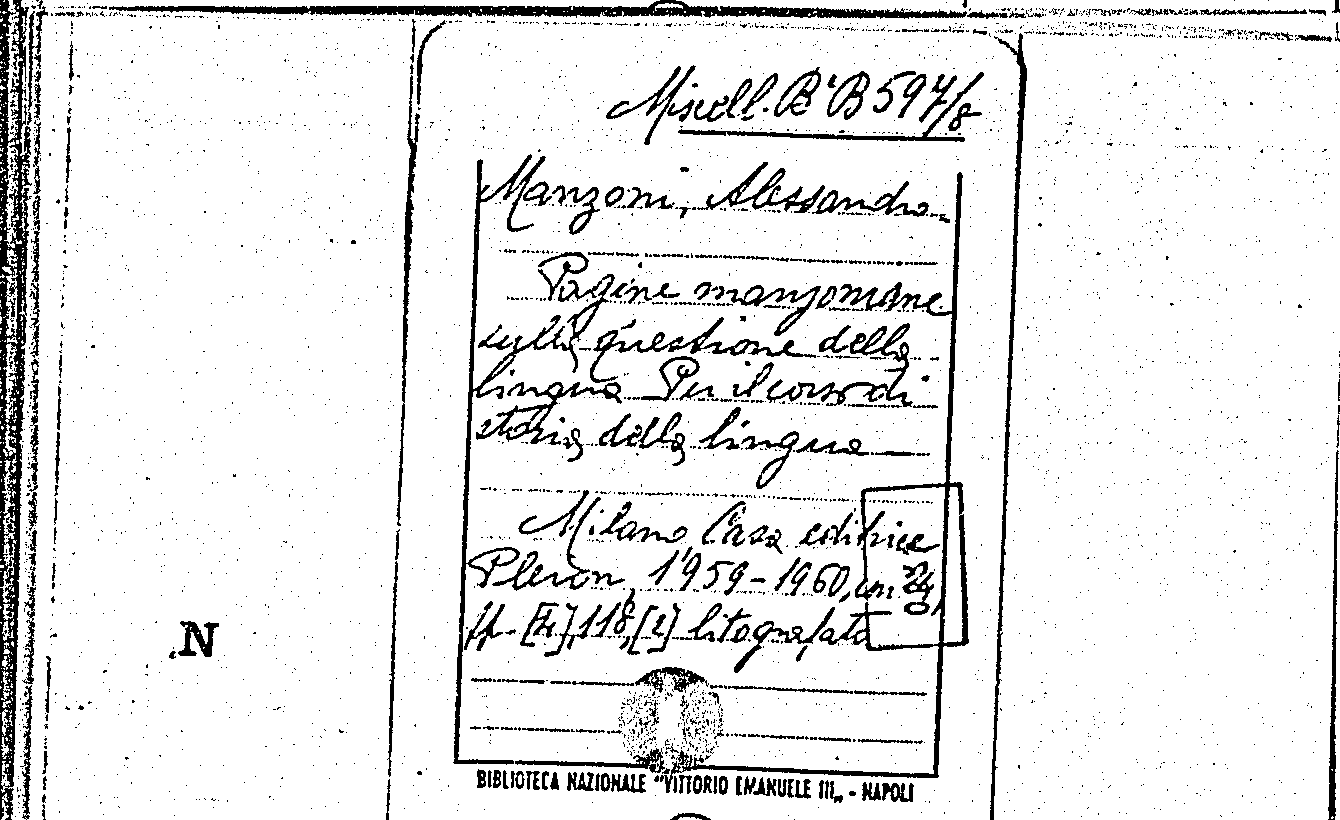 Miscell. B'B 597/8
Manzoni, Alessandro.
Pagine manzoniane
sulla questione della
lingua Per il corso di
storia della lingua
Milano Casa editrice
Pleion, 1959-1960, cm
pp. 118, litografato
N
BIBLIOTECA NAZIONALE "VITTORIO EMANUELE III„ - NAPOLI